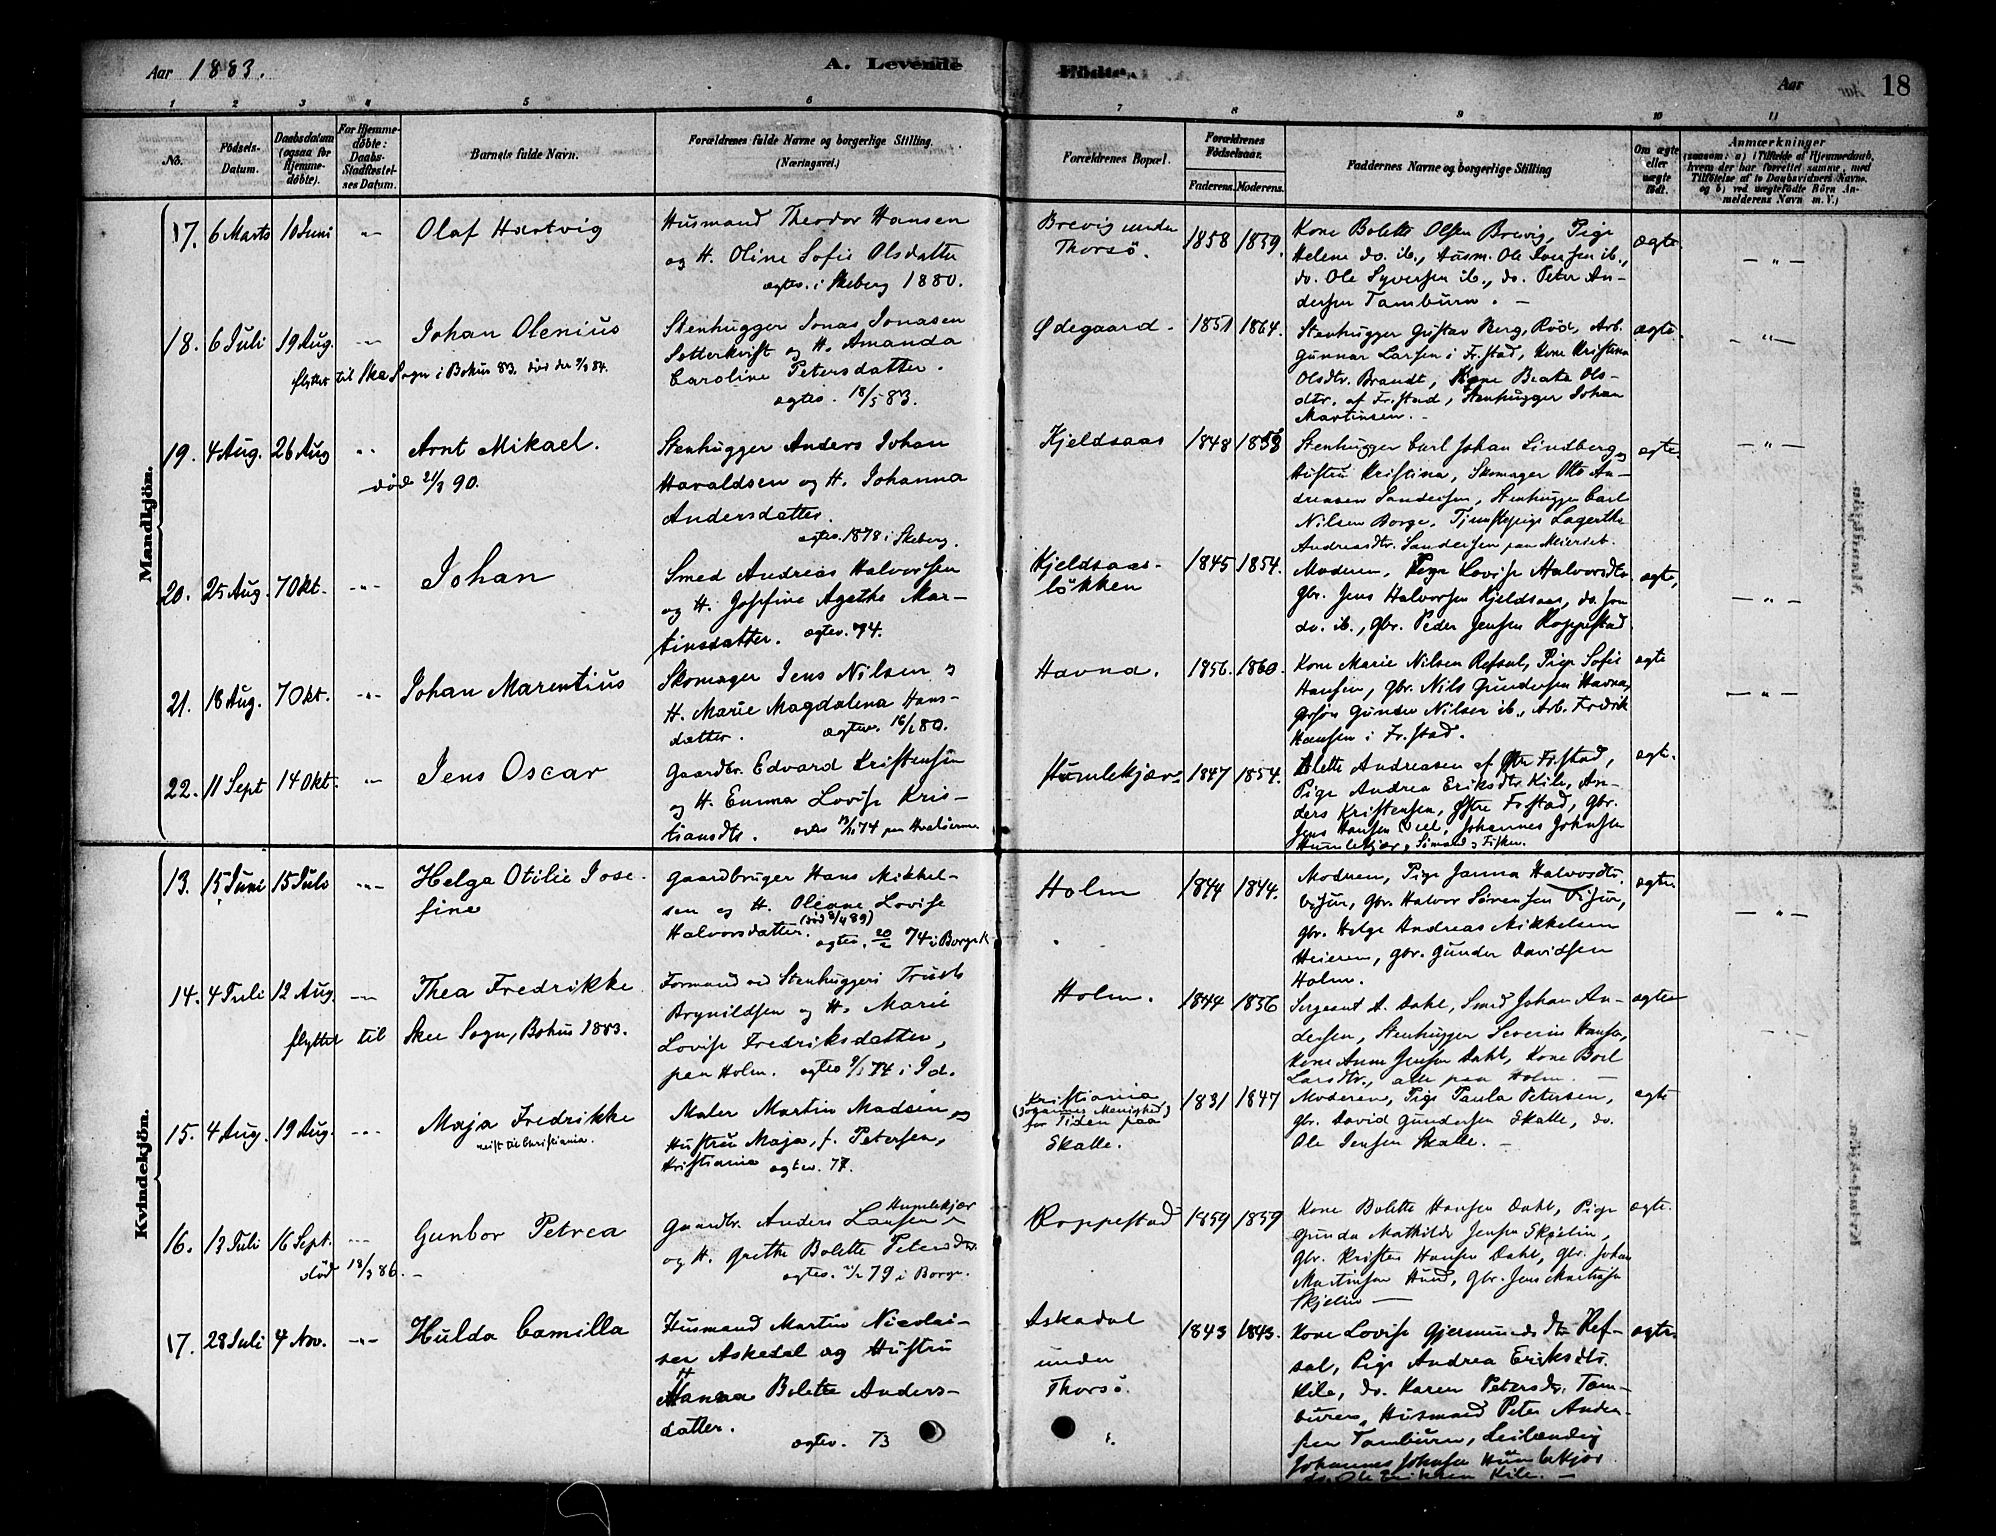 Aar 1883.
A. Levende
Fødte.
Aar
18
1 2 3 4 5 6 7 8 9 10 11
No.
Fødsels-Datum.
Daabsdatum (ogsaa for Hjemme-døbte).
For Hjemme-døbte: Daabs-Stadfæstel-ses Datum.
Barnets fulde Navn.
Forældrenes fulde Navne og borgerlige Stilling.
(Næringsvei.)
Forældrenes Bopæl.
Forældrenes Fødselsaar.
Faderens. Moderens.
Faddernes Navne og borgerlige Stilling
Om ægte eller uægte født.
Anmærkninger
(saasom: a) i Tilfælde af Hjemmedaab, hvem der har forrettet samme, med Tilføielse af to Daabsvidners Navne, og b) ved uægtefødte Børn An-melderens Navn m. V.)
Mandkjön.
17. 6 Marts 10 Juni -"- Olaf Hartvig
Husmand Theodor Hansen
og H. Oline Sofie Olsdatter
ægtev. i Skeberg 1880.
Brevig under
Thorsö.
1858 1859.
Kone Bolette Olsen Brevig, Pige
Helene do. ib., Husm. Ole Iversen ib.,
do. Ole Syversen ib., do. Peter An-
dersen Tamburn. -
ægte.
- " -
18. 6 Juli 19 Aug. -"- Johan Olenius
flyttet til Skee Sogn i Bohus 83.
Stenhugger Jonas Jonasen
Setterkvist og H. Amanda
Caroline Petersdatter.
ægtev. 18/5 83.
Ødegaard.
1851 1864.
Stenhugger Gustav Berg, Rød, Arb.
Gunnar Larsen i Fr.stad, Kone Kristina
Olsdtr. Brandt, Kone Beate Ols-
dtr. af Fr.stad, Stenhugger Johan
Martinsen. -
ægte.
- " -
19. 4 Aug. 26 Aug -"- Arnt Mikael.
død 21/3 90.
Stenhugger Anders Johan
Havaldsen og H. Johanna
Andersdatter.
ægtev. 1878 i Skeberg.
Kjeldsaas
1848
Stenhugger Carl Johan Lindberg og
Hustru Kristina, Skomager Otto An-
dreasen Sandersen, Stenhugger Carl
Nilsen Borge, Tjenstepige Lagertha
Andreasdtr. Sandersen paa Meieriet.
ægte.
- " -
20. 25 Aug. 7 Okt. -"- Johan
Smed Andreas Halvorsen
og H. Josefine Agathe Mar-
tinsdatter. ægtev. 74.
Kjeldsaas-
løkken
1845 1854.
Moderen, Pige Lovise Halvorsdtr.
Gbr. Jens Halvorsen Kjeldsaas, do. Jon
do. ib., Gbr. Peder Jensen Roppestad.
ægte,
- " -
21. 18 Aug. 7 Okt. -"- Johan Marentius
Skomager Jens Nilsen og
H. Marie Magdalena Hans-
datter. ægtev. 16/1 80.
Havna.
1856. 1860.
Kone Marie Nilsen Refsal, Pige Sofie
Hansen, Gbr. Nils Gundersen Havna,
Gbrsøn Gunder Nilsen ib., Arb. Fredrik
Hansen i Fr.stad.
ægte
- " -
22. 11 Sept 14 Okt. -"- Jens Oscar
Gaardbr. Edvard Kristensen
og H. Emma Lovise Kris-
tiansdtr. 74 paa Hvaløerne
Humlekjær
1847 1854.
Olette Andreasen af Fr.stad,
Pige Andrea Eriksdtr. Kile, An-
ders Kristensen, Østre Fr.stad, Gbr.
Jens Hansen, Johannes Johnsen
Humlekjær, Sömand & Fisker.
ægte.
Kvindekjön.
13. 15 Juni 15 Juli -"- Helga Otilie Jose-
fine
Gaardbruger Hans Mikkel-
sen og H. Oleane Lovise
Halvorsdatter. (død 8/4 89)
ægtev. 20/2 74 i Borge k.
Holm
1844 1844.
Moderen, Pige Janna Halvorsdtr.
Visur, Gbr. Halvor Sörensen Visur,
Gbr. Helge Andreas Mikkelsen
Heieren, Gbr. Gunder Davidsen
Holm.
ægte.
- " -
14. 4 Juli 12 Aug -"- Thea Fredrikke
flyttet til Skee Sogn, Bohus 1883.
Formand ved Stenhuggeri Truls
Brynildsen og H. Marie
Lovise Fredriksdatter,
paa Holm. ægtev. 74 i Id.
Holm.
1844 1856
Sergeant A. Dahl, Smed Johan An-
dersen, Stenhugger Severin Hansen,
Kone Anne Jensen Dahl, Kone Boel
Larsdtr., alle paa Holm. -
ægte
15. 4 Aug. 19 Aug. -"- Maja Fredrikke
reist til Christiania.
Maler Martin Madsen og
Hustru Maja, f. Petersen,
Kristiania ægtev. 77.
Kristiania
(Johannes Menighed)
for Tiden paa
Skalle.
1831 1847
Moderen, Pige Paula Petersen,
Gbr. David Gundersen Skalle, do.
Ole Jensen Skalle. -
ægte
16. 13 Juli 16 Sept. -"- Gunbor Petrea
død 18/3 86. -
Gaardbr. Anders Larsen Humlekjær
og H. Grethe Bolette Petersdtr.
ægtev. 79 i Borge.
Roppestad
1859 1859
Kone Bolette Hansen Dahl, Pige
Gunda Mathilde Jensen Skjelin,
Gbr. Kristen Hansen Dahl, Gbr. Johan
Martinsen Hund, Gbr. Jens Martinsen
Skjelin -
ægte.
17. 28 Juli 4 Nov. -"- Hulda Camilla
Husmand Martin Nicolai-
sen Askedal og Hustru
Hanna Bolette Anders-
datter.
ægtev. 73
Askedal
under
Thorsö.
1843 1843.
Kone Lovise Gjermundsdtr. Ref-
sal, Pige Andrea Eriksdtr.
Kile, do. Karen Petersdtr. Tam-
buren, Husmand Peter Ander-
sen Tamburn, Leilænding
Johannes Johnsen Humlekjær
do. Ole Eriksen Kile. -
ægte.